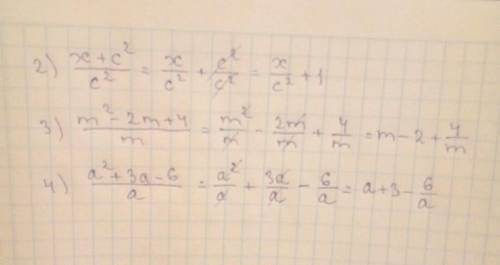 2) (x+c²)/c² = x/c² + c²/c² = x/c² + 1
3) (m²-2m+4)/m = m²/m - 2m/m + 4/m = m-2+4/m
4) (a²+3a-6)/a = a²/a + 3a/a - 6/a = a+3-6/a